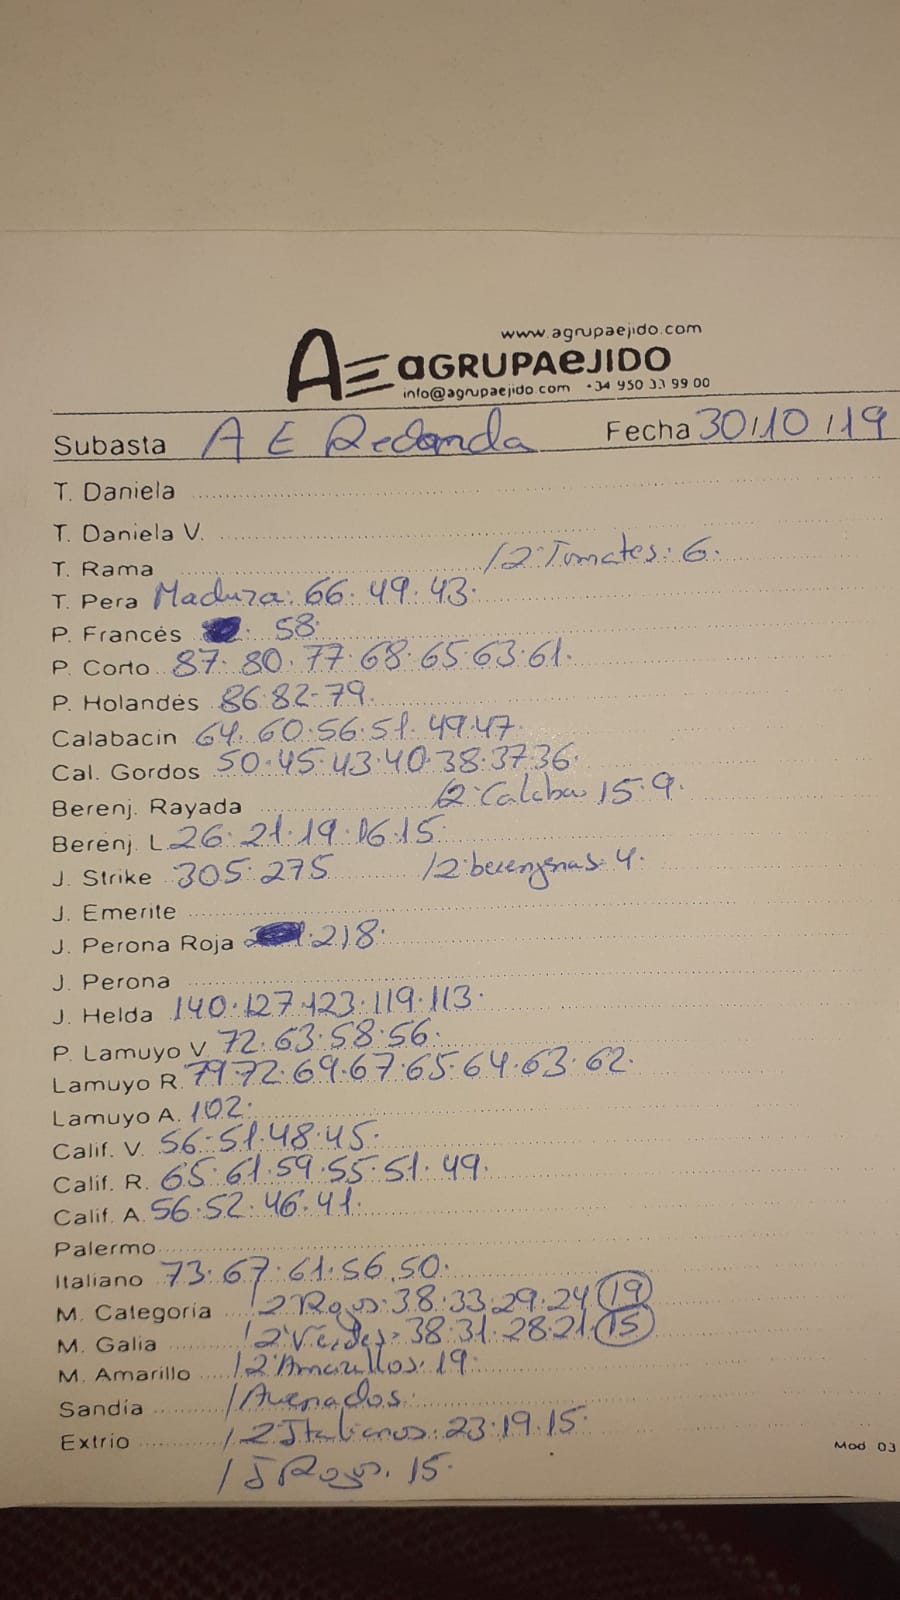 www.agrupaejido.com
AE aGRUPAeJIDO
info@agrupaejido.com +34 950 33 99 00
Subasta A E Redonda Fecha 30/10/19
T. Daniela
T. Daniela V.
T. Rama /2ª Tomates: 6.
T. Pera Madura: 66. 49. 43.
P. Francés 58.
P. Corto 87. 80. 77. 68. 65. 63. 61.
P. Holandés 86. 82. 79.
Calabacin 64. 60. 56. 51. 49. 47.
Cal. Gordos 50. 45. 43. 40. 38. 37. 36.
Berenj. Rayada /2ª Calaba 15. 9.
Berenj. L 26. 21. 19. 16. 15.
J. Strike 305. 275 /2ª berenjenas. 4.
J. Emerite
J. Perona Roja 218.
J. Perona
J. Helda 140. 127. 123. 119. 113.
P. Lamuyo V. 72. 63. 58. 56.
Lamuyo R. 79. 72. 69. 67. 65. 64. 63. 62.
Lamuyo A. 102.
Calif. V. 56. 51. 48. 45.
Calif. R. 65. 61. 59. 55. 51. 49.
Calif. A. 56. 52. 46. 41.
Palermo
Italiano 73. 67. 61. 56. 50.
M. Categoría /2ª Rojos. 38. 33. 29. 24 19
M. Galia /2ª Verdes. 38. 31. 28. 21. 15
M. Amarillo /2ª Amarillos. 19.
Sandía /Avenados.
Extrio /2ª Italianos: 23. 19. 15.
Mod 03
/ Rojos. 15.